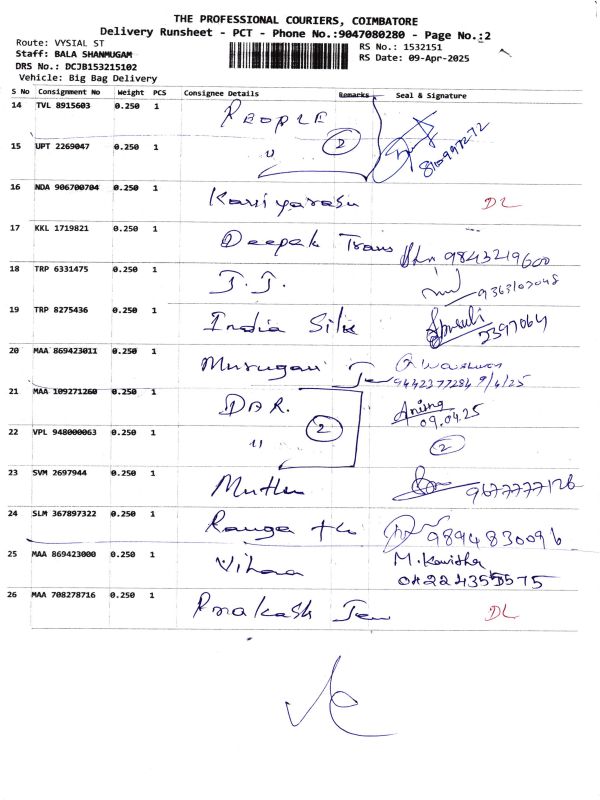 THE PROFESSIONAL COURIERS, COIMBATORE
Delivery Runsheet - PCT - Phone No.:9047080280 - Page No.:2
Route: VYSIAL ST
Staff: BALA SHANMUGAM
DRS No.: DCJB153215102
Vehicle: Big Bag Delivery
RS No.: 1532151
RS Date: 09-Apr-2025
S No Consignment No Weight PCS Consignee Details Remarks Seal & Signature
14 TVL 8915603 0.250 1 PEOPLE
15 UPT 2269047 0.250 1 〃 2
16 NDA 906700704 0.250 1 DL
17 KKL 1719821 0.250 1 Deepak Trans 9843219600
18 TRP 6331475 0.250 1 J.J.
19 TRP 8275436 0.250 1 India Silk 2397064
20 MAA 869423011 0.250 1 Murugan Jew 9442377284 9/4/25
21 MAA 109271260 0.250 1 DAR. 09.04.25
22 VPL 948000063 0.250 1 〃 2 2
23 SVM 2697944 0.250 1 Muthu 9677777126
24 SLM 367897322 0.250 1 Ranga 9894830096
25 MAA 869423000 0.250 1 M. Kavitha
04224355575
26 MAA 708278716 0.250 1 Prakash Jew DL